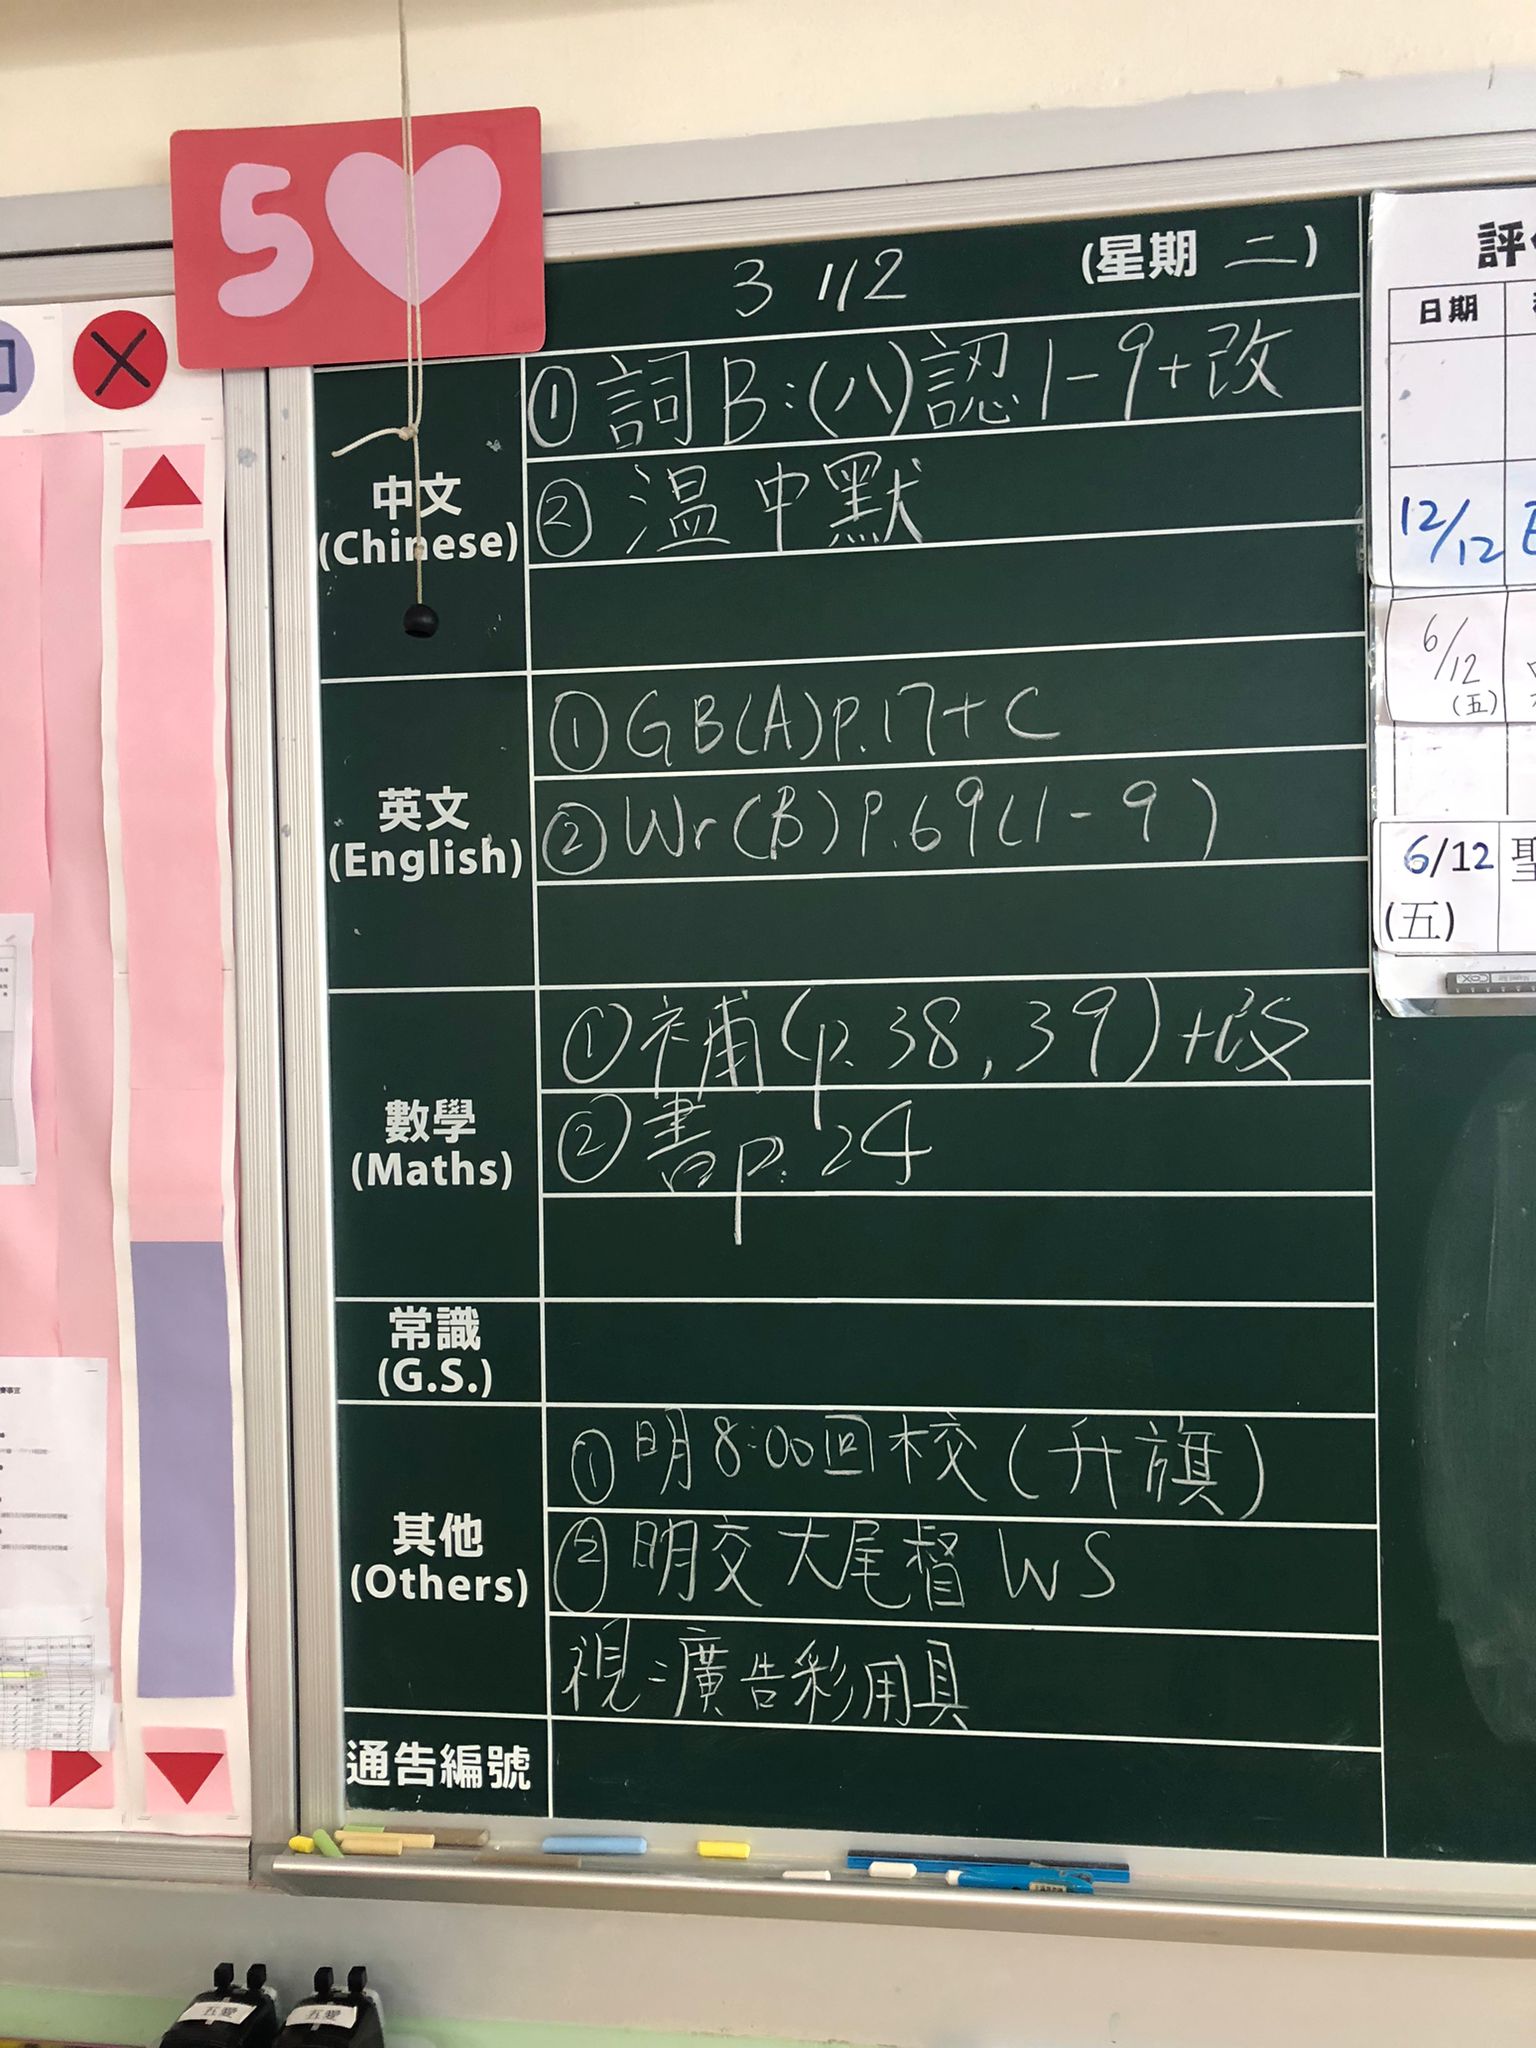 5
3/12 (星期 二)
① 詞B:(八)認1-9+改
中文
(Chinese)
② 溫中默
① GB(A)p.17+C
英文
(English)
② Wr(B)P.69(1-9)
① 補(p.38,39)+改
數學
(Maths)
② 書p.24
常識
(G.S.)
① 明8:00回校(升旗)
其他
(Others)
② 明交大尾督WS
視:廣告彩用具
通告編號
日期
12/12
6/12
(五)
6/12
(五)
五愛
五愛